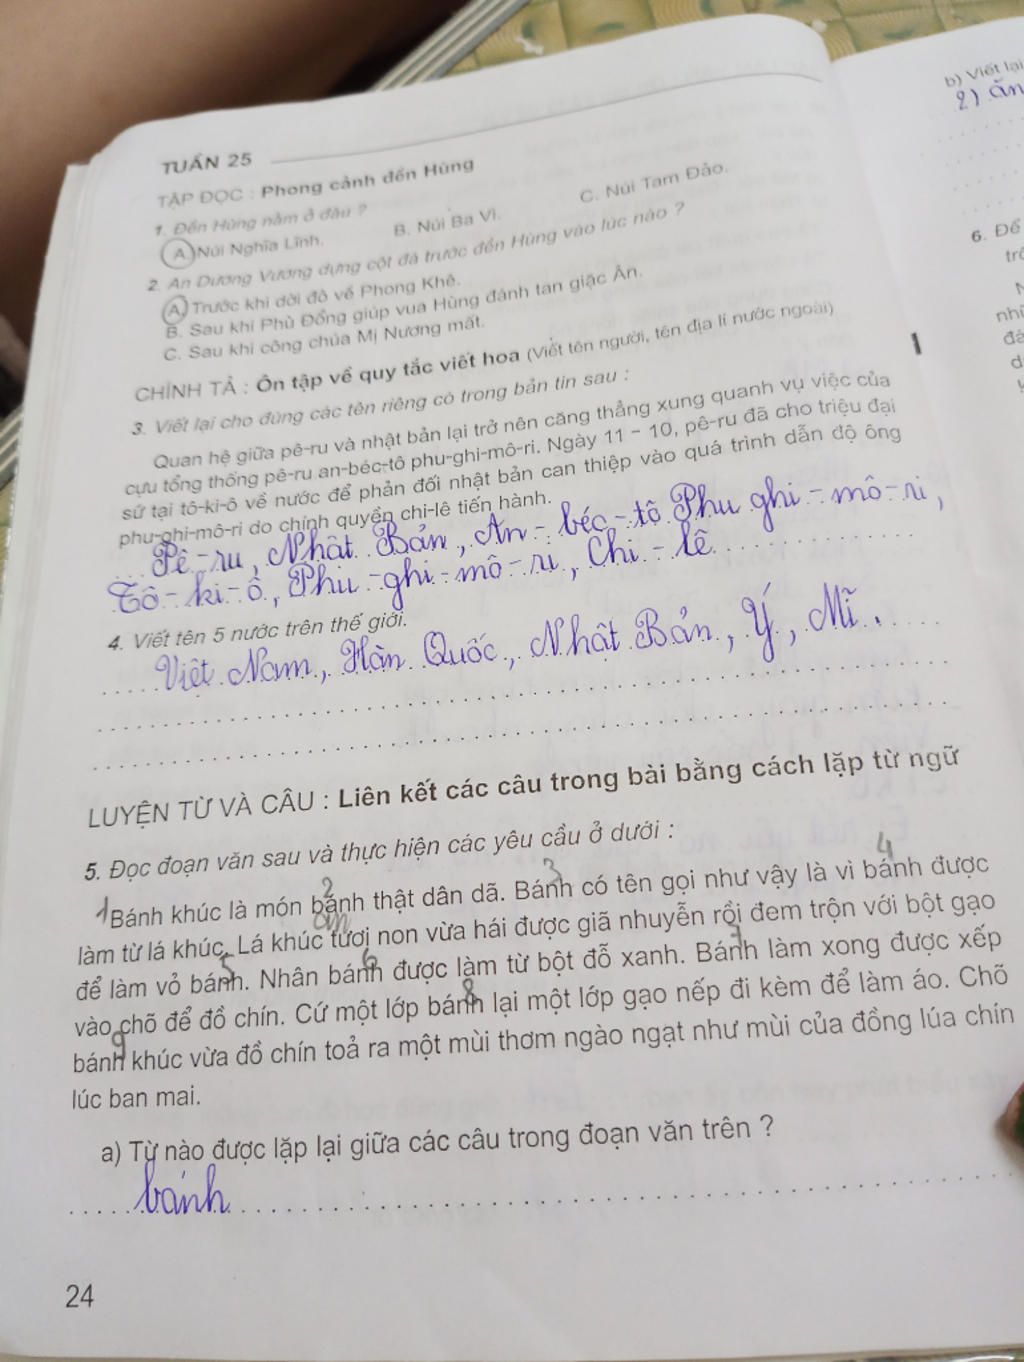 TUẦN 25
TẬP ĐỌC : Phong cảnh đền Hùng
1. Đền Hùng nằm ở đâu ?
A. Núi Nghĩa Lĩnh. B. Núi Ba Vì. C. Núi Tam Đảo.
2. An Dương Vương dựng cột đá trước đền Hùng vào lúc nào ?
A. Trước khi dời đô về Phong Khê.
B. Sau khi Phù Đổng giúp vua Hùng đánh tan giặc Ân.
C. Sau khi công chúa Mị Nương mất.
CHÍNH TẢ : Ôn tập về quy tắc viết hoa (Viết tên người, tên địa lí nước ngoài)
3. Viết lại cho đúng các tên riêng có trong bản tin sau :
Quan hệ giữa pê-ru và nhật bản lại trở nên căng thẳng xung quanh vụ việc của
cựu tổng thống pê-ru an-béc-tô phu-ghi-mô-ri. Ngày 11 – 10, pê-ru đã cho triệu đại
sứ tại tô-ki-ô về nước để phản đối nhật bản can thiệp vào quá trình dẫn độ ông
phu-ghi-mô-ri do chính quyền chi-lê tiến hành.
Pê-ru, Nhật Bản, An-béc-tô Phu ghi-mô-ri,
Tô-ki-ô, Phu-ghi-mô-ri, Chi-lê
4. Viết tên 5 nước trên thế giới.
Việt Nam, Hàn Quốc, Nhật Bản, Ý, Mĩ.
LUYỆN TỪ VÀ CÂU : Liên kết các câu trong bài bằng cách lặp từ ngữ
5. Đọc đoạn văn sau và thực hiện các yêu cầu ở dưới :
1 2 3 4
Bánh khúc là món bánh thật dân dã. Bánh có tên gọi như vậy là vì bánh được
làm từ lá khúc. Lá khúc tươi non vừa hái được giã nhuyễn rồi đem trộn với bột gạo
5 6 7
để làm vỏ bánh. Nhân bánh được làm từ bột đỗ xanh. Bánh làm xong được xếp
8
vào chõ để đồ chín. Cứ một lớp bánh lại một lớp gạo nếp đi kèm để làm áo. Chõ
9
bánh khúc vừa đồ chín toả ra một mùi thơm ngào ngạt như mùi của đồng lúa chín
lúc ban mai.
a) Từ nào được lặp lại giữa các câu trong đoạn văn trên ?
bánh
24
b) Viết lại
6. Để